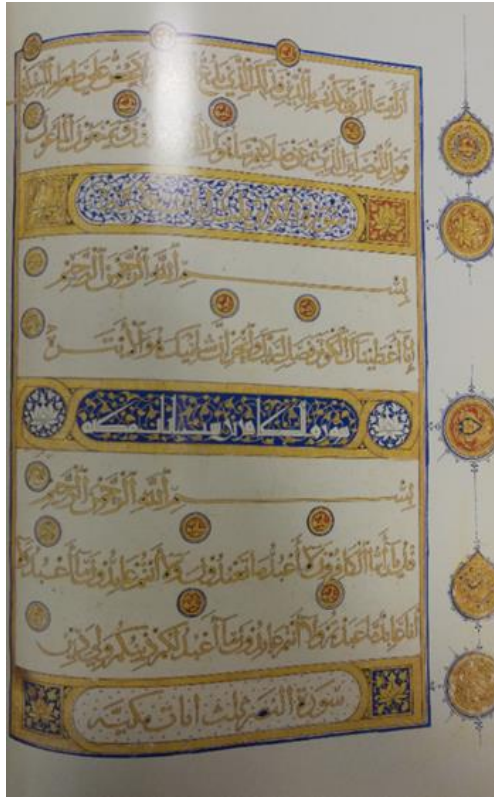 أرأيت الذي يكذب بالدين فذلك الذي يدع ولا يحض على طعام المسكين
فويل للمصلين الذين هم عن صلاتهم ساهون الذين ويمنعون الماعون
بسم الله الرحمن الرحيم
إنا أعطيناك الكوثر فصل لربك وانحر إن شانئك هو الأبتر
سورة الكافرون ست آيات مكية
بسم الله الرحمن الرحيم
قل يا أيها الكافرون لا أعبد ما تعبدون ولا أنتم عابدون ما أعبد ولا
أنا عابد ما عبدتم ولا أنتم عابدون ما أعبد لكم دينكم ولي دين
سورة النصر ثلث آيات مكية